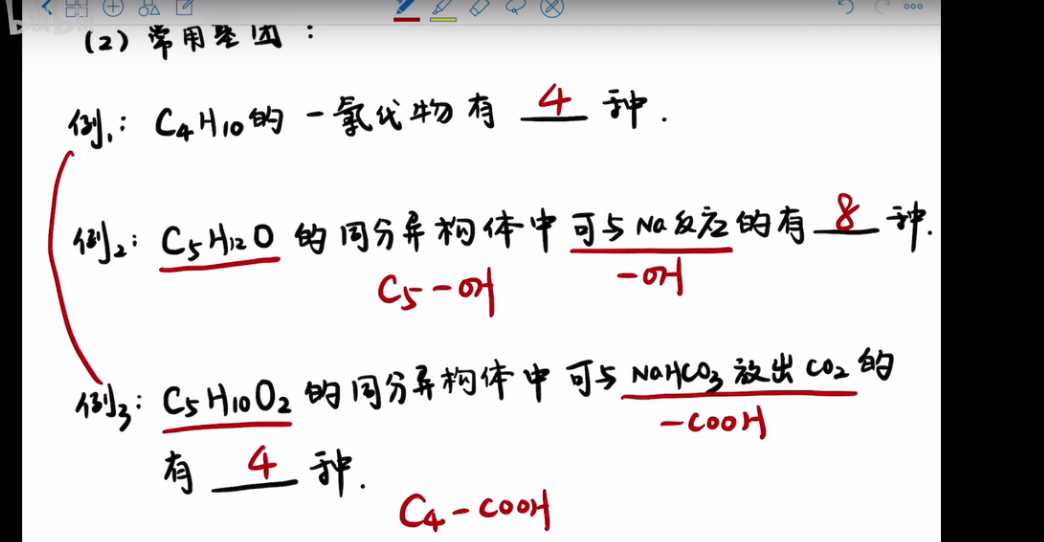 (2) 常用基团：
例1：C4H10的一氯代物有 4 种.
例2：C5H12O 的同分异构体中可与Na反应的有 8 种.
C5-OH -OH
例3：C5H10O2 的同分异构体中可与 NaHCO3 放出 CO2 的
-COOH
有 4 种.
C4-COOH